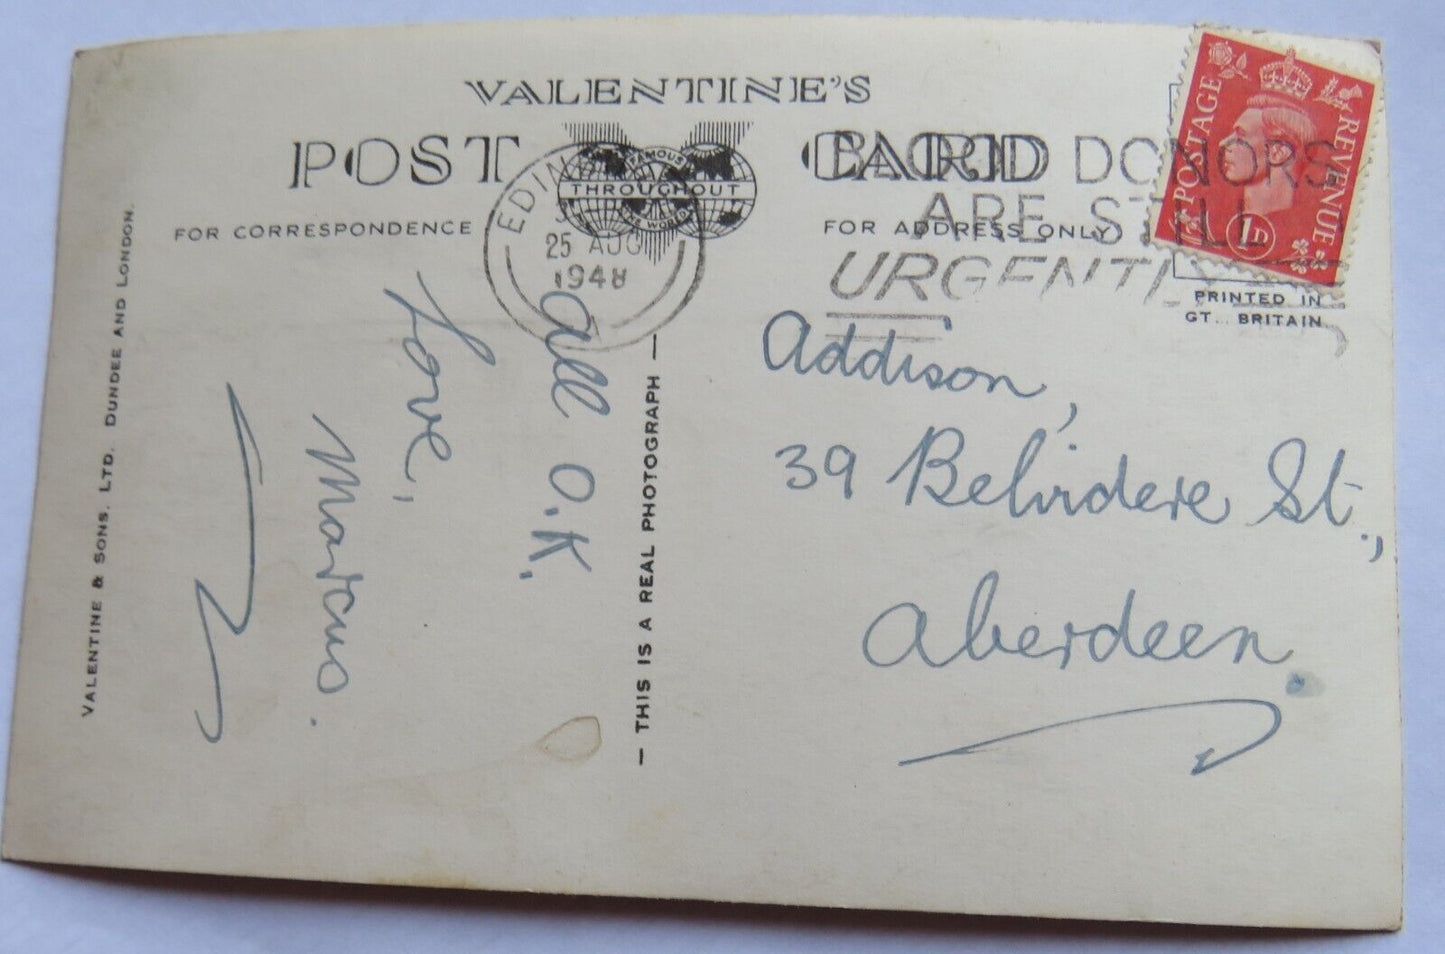 VALENTINE'S
POST CARD
FAMOUS
THROUGHOUT
THE WORLD
FOR CORRESPONDENCE
FOR ADDRESS ONLY
25 AUG
1948
BLOOD DONORS
ARE STILL
URGENTLY
POSTAGE
REVENUE
1D
PRINTED IN
GT. BRITAIN.
VALENTINE & SONS. LTD. DUNDEE AND LONDON.
all O.K.
Love,
Marcus.
— THIS IS A REAL PHOTOGRAPH —
Addison,
39 Belvidere St.,
Aberdeen.